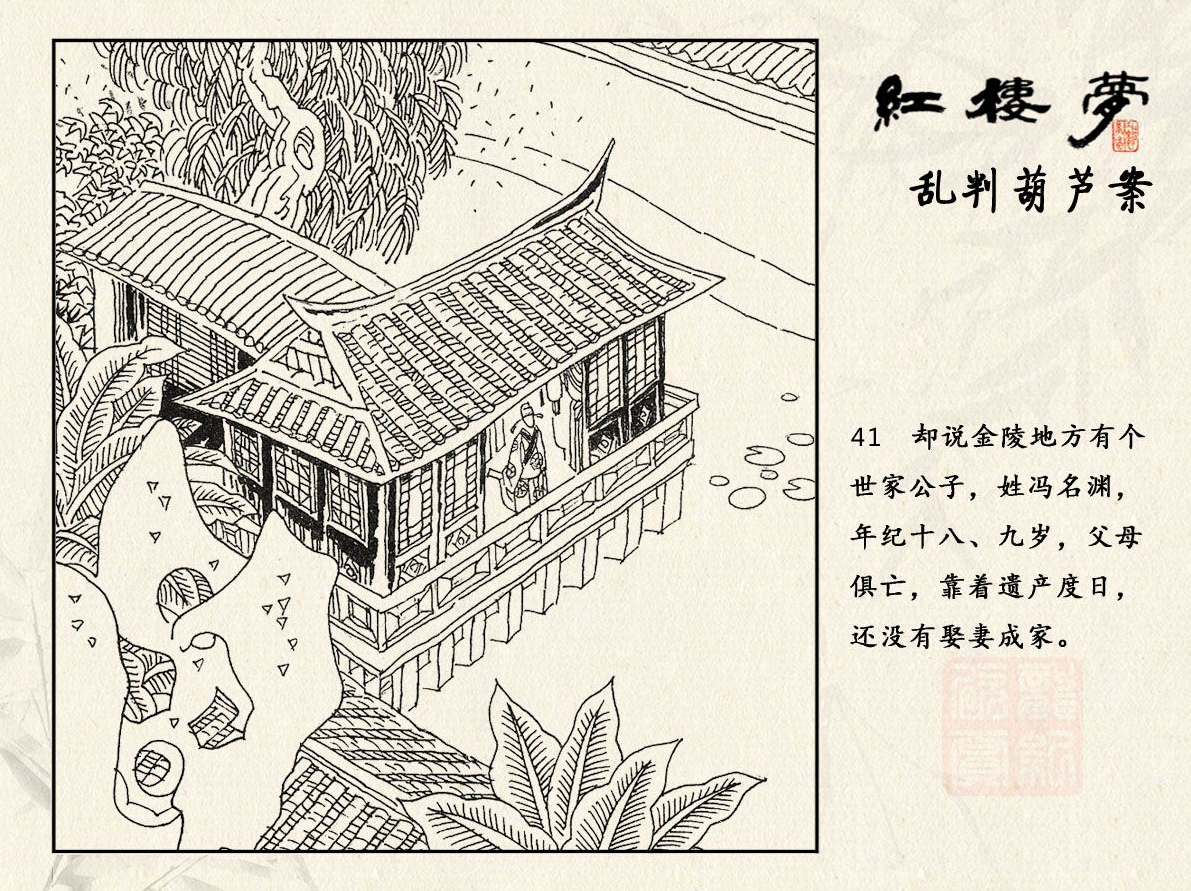 紅樓夢
乱判葫芦案
41 却说金陵地方有个
世家公子，姓冯名渊，
年纪十八、九岁，父母
俱亡，靠着遗产度日，
还没有娶妻成家。